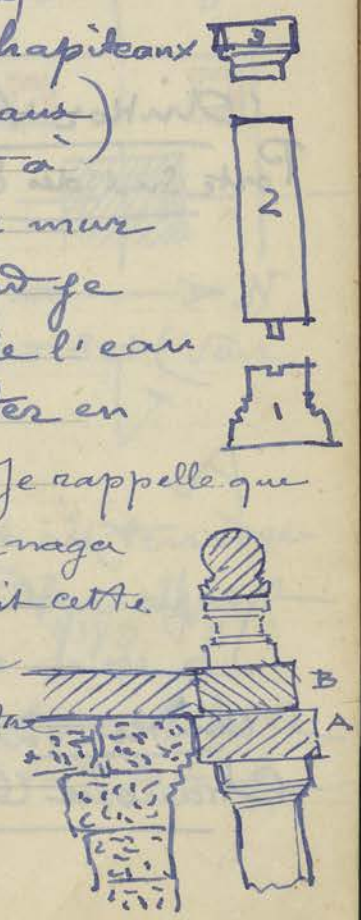 hapiteaux
3
aus)
t à
mur
2
je
e l'eau
ter en
1
Je rappelle que
naga
it cette
B
A